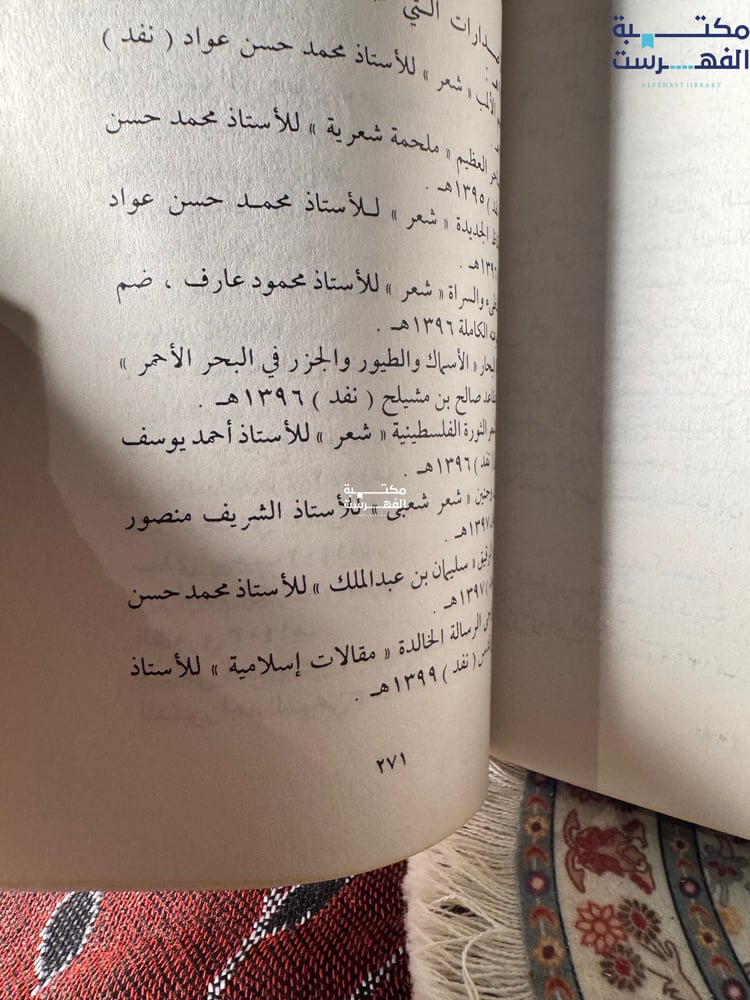 مكتبة
الفهرست
ALFEHRST LIBRARY
التي
« شعر » للأستاذ محمد حسن عواد ( نفد )
العظيم « ملحمة شعرية » للأستاذ محمد حسن
) ١٣٩٥هـ .
الجديدة « شعر » للأستاذ محمد حسن عواد
هـ .
والسراة « شعر » للأستاذ محمود عارف ، ضم
الكاملة ١٣٩٦هـ .
« الأسماك والطيور والجزر في البحر الأحمر »
صالح بن مشيلح ( نفد ) ١٣٩٦هـ .
الثورة الفلسطينية « شعر » للأستاذ أحمد يوسف
نفد ) ١٣٩٦هـ .
وحنين « شعر شعبي » للأستاذ الشريف منصور
١٣٩٧هـ .
« سليمان بن عبدالملك » للأستاذ محمد حسن
) ١٣٩٧هـ .
الرسالة الخالدة « مقالات إسلامية » للأستاذ
( نفد ) ١٣٩٩هـ .
٢٧١
مكتبة
الفهرست